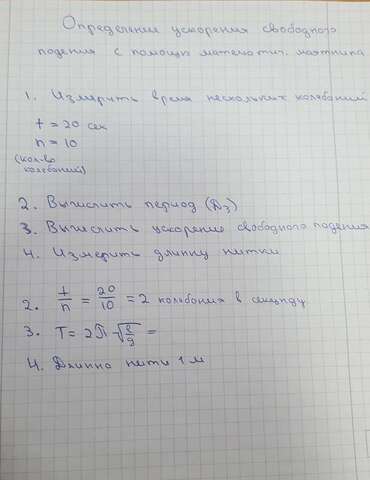 Определение ускорения свободного
падения с помощью математич. маятника
1. Измерить время нескольких колебаний
t = 20 сек
n = 10
(кол-во
колебаний)
2. Вычислить период (Dз)
3. Вычислить ускорение свободного падения
4. Измерить длинну нитки
2. t/n = 20/10 = 2 колебания в секунду
3. T = 2π √(l/g) =
4. Длинна нити 1 м